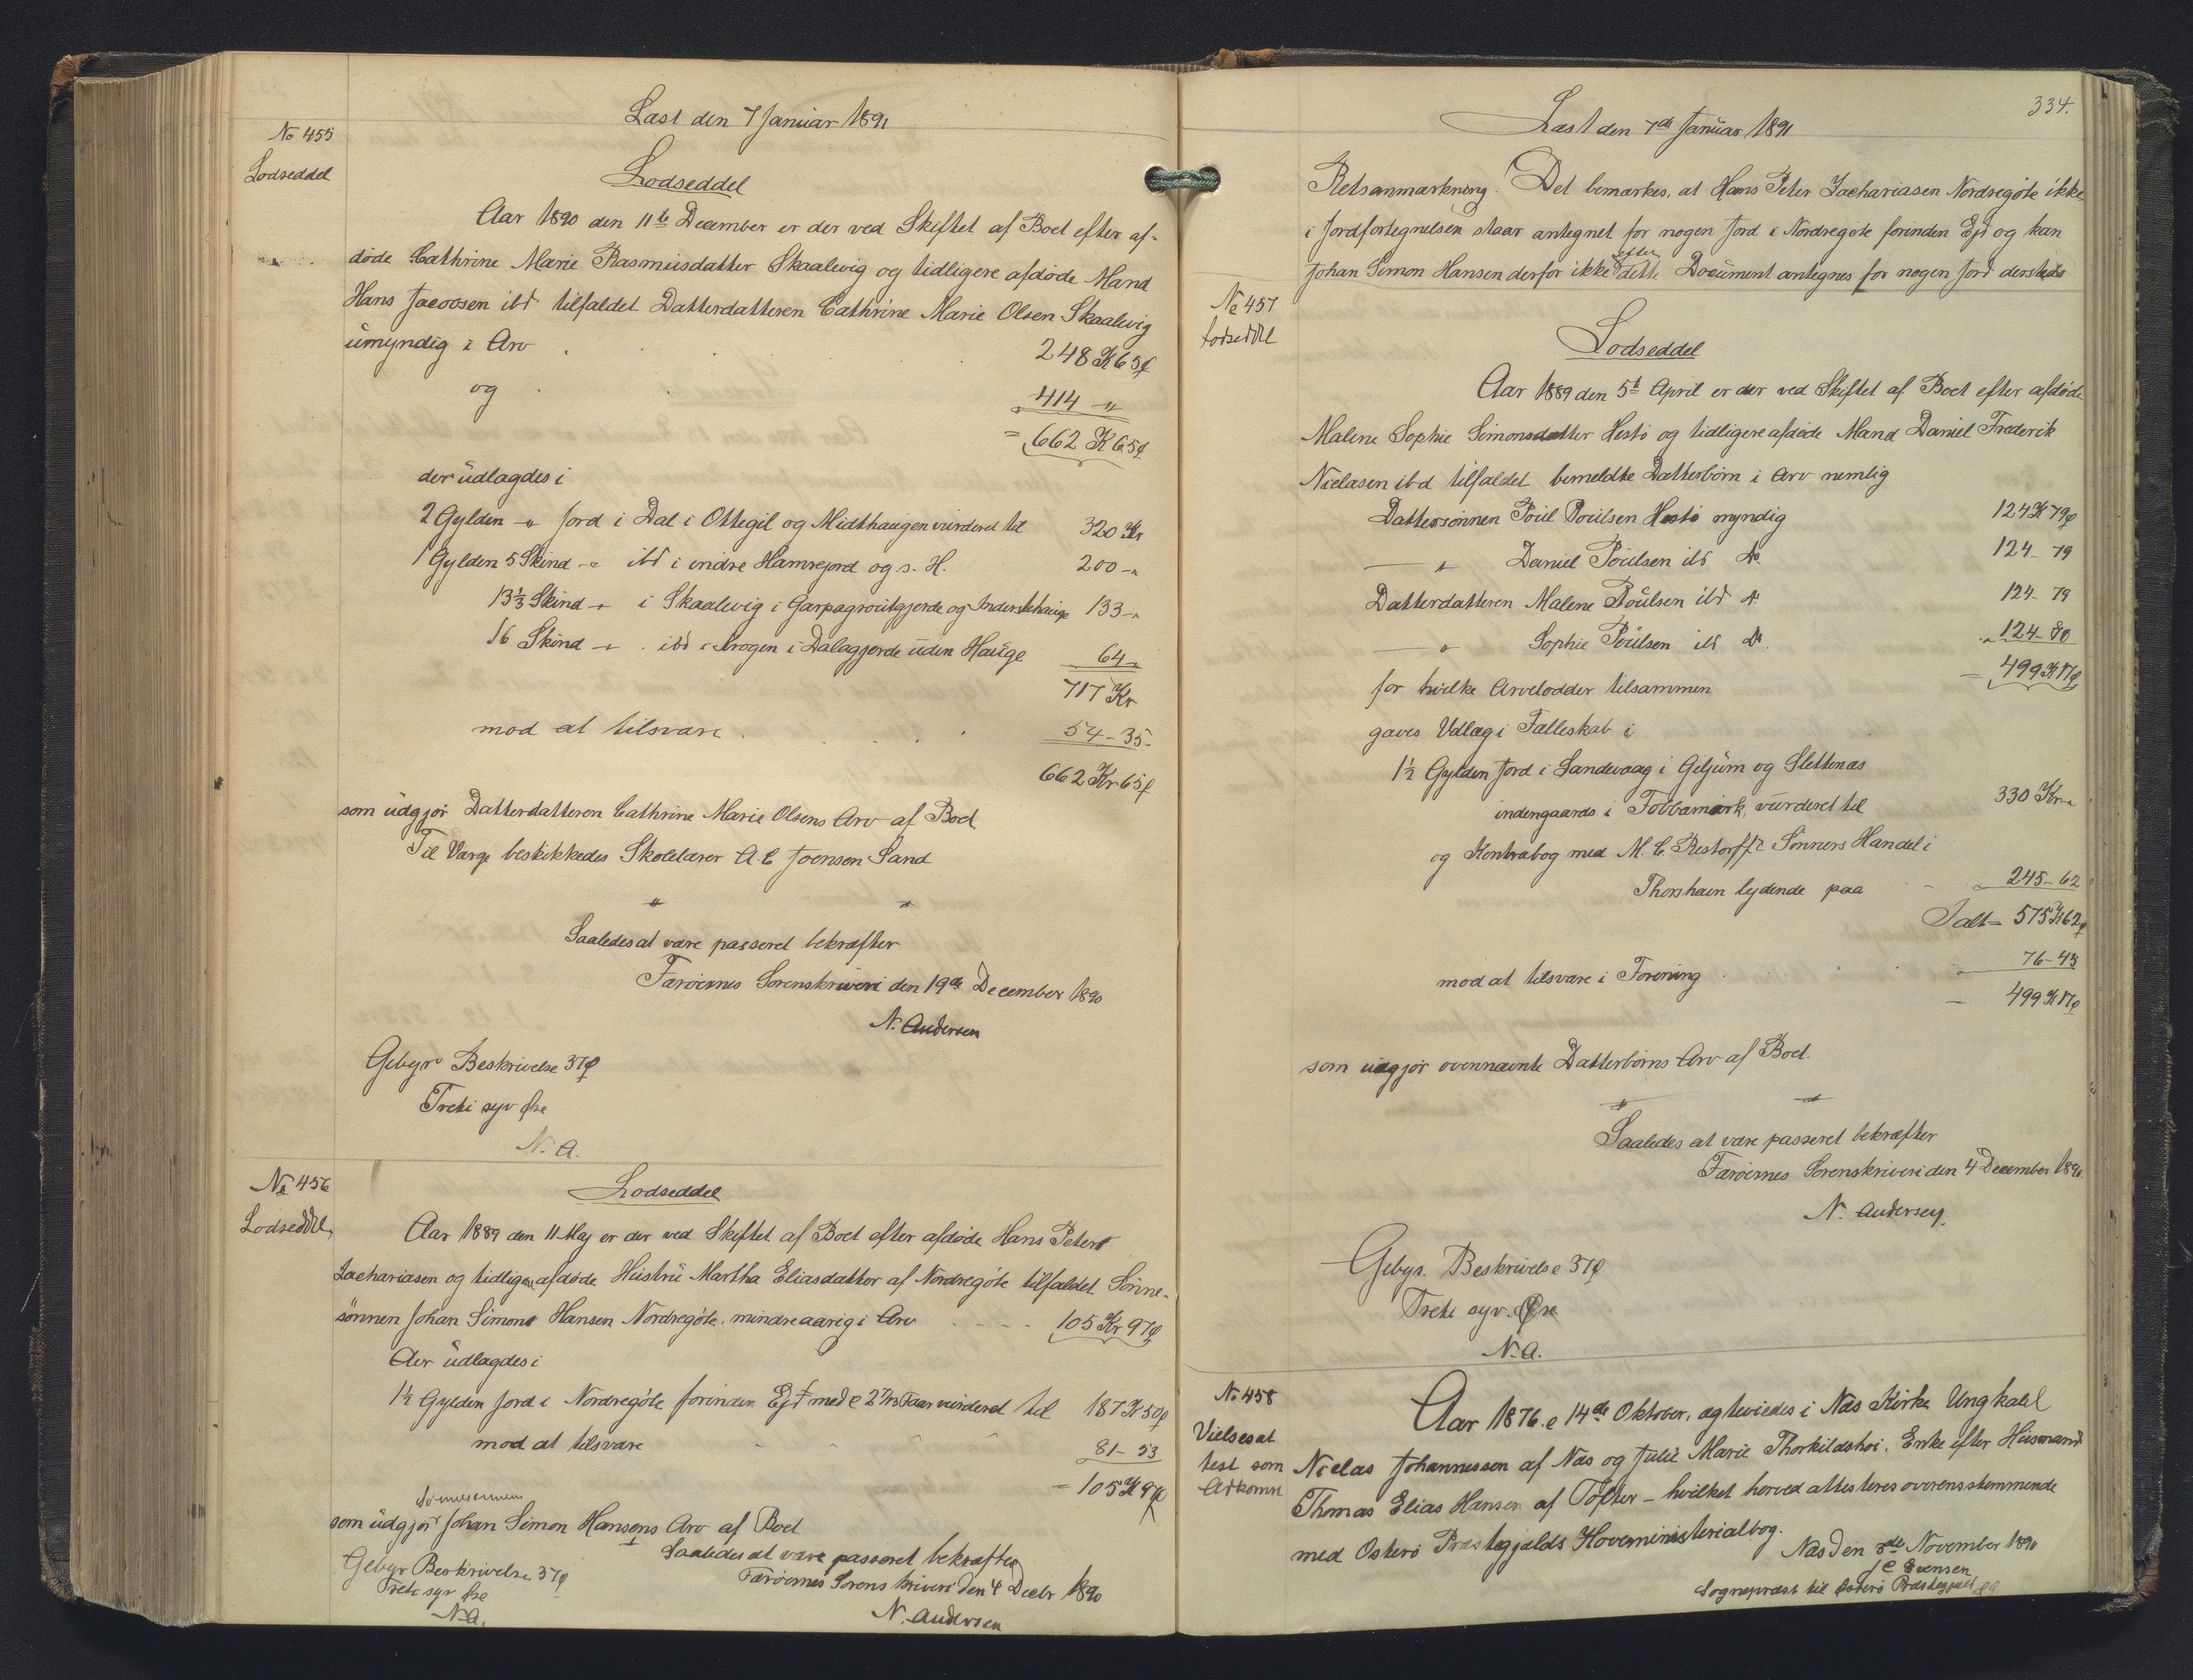 Læst den 7 Januar 1891
No 455
Lodseddel
Lodseddel
Aar 1890 den 11te December er der ved Skiftet af Boet efter af-
døde Cathrine Marie Rasmusdatter Skaalevig og tidligere afdøde Mand
Hans Jacobsen ibd tilfaldet Datterdatteren Cathrine Marie Olsen Skaalevig
umyndig i Arv . . . . 248 K 65 ø
og . . . 414 - "
= 662 K 65 ø
der udlagdes i
2 Gylden - " Jord i Dal i Ottegil og Midthaugen vurderet til 320 Kr
1 Gylden 5 Skind - " ibd i indre Hamrejord og s. H. 200 - "
13 1/3 Skind - " i Skaalevig i Garpagroutgjerde og Inderstehauge 133 - "
16 Skind - " ibd i Krogen i Dalagjerde uden Hauge 64 - "
717 Kr
mod at tilsvare . . . . 54 - 35 -
662 Kr 65 ø
som udgjør Datterdatteren Cathrine Marie Olsens Arv af Boet
Til Værge beskikkedes Skolelærer A. C. Joensen Sand
" "
Saaledes at være passeret bekræfter
Færøernes Sorenskriveri den 19de December 1890
N. Andersen
Gebyr Beskrivelse 37 ø
Treti syv Øre
N. A.
No 456
Lodseddel
Lodseddel
Aar 1889 den 11 Maj er der ved Skiftet af Boet efter afdøde Hans Peter
Zachariasen og tidligere afdøde Hustru Martha Eliasdatter af Nordregøte tilfaldet Sønne-
sønnen Johan Simon Hansen Nordregøte, mindreaarig i Arv . . . . 105 Kr 97 ø
der udlagdes i
1½ Gylden Jord i Nordregøte forinden Ejd med 2 7/13 Faar vurderet til 187 K 50 ø
mod at tilsvare 81 - 53
= 105 K 97 ø
Sønnesønnen
som udgjør Johan Simon Hansens Arv af Boet
Saaledes at være passeret bekræfter
Gebyr Beskrivelse 37 ø
Færøernes Sorenskriveri den 4 Decbr 1890
Treti syv Øre
N. A.
N. Andersen
334.
Læst den 7de Januar 1891
Retsanmærkning. Det bemærkes, at Hans Peter Zachariasen Nordregøte ikke
i Jordfortegnelsen staar antegnet for nogen Jord i Nordregøte forinden Ejd og kan
efter
Johan Simon Hansen derfor ikke dette Document antegnes for nogen Jord dersteds
No 457
Lodseddel
Lodseddel
Aar 1889 den 5te April er der ved Skiftet af Boet efter afdøde
Malene Sophie Simonsdatter Hestø og tidligere afdøde Mand Daniel Frederik
Nielasen ibd tilfaldet bemeldte Datterbørn i Arv nemlig
Dattersønnen Poul Poulsen Hestø myndig 124 K 79 ø
— " Daniel Poulsen ibd Do. 124 - 79
Datterdatteren Malene Poulsen ibd Do 124 - 79
— " Sophie Poulsen ibd Do. 124 - 80
for hvilke Arvelodder tilsammen = 499 K 17 ø
gaves Udlæg i Fælleskab i
1½ Gylden Jord i Sandevaag i Giljum og Slettenæs
indengaards i Tobbamørk, vurderet til 330 Kr - "
og Kontrabog med M. C. Restorffs Sønners Handel i
Thorshavn lydende paa 245 - 62
Ialt = 575 K 62 ø
mod at tilsvare i Forening . . . . 76 - 45
— 499 K 17 ø
som udgjør ovennævnte Datterbørns Arv af Boet.
" "
Saaledes at være passeret bekræfter
Færøernes Sorenskriveri den 4 December 1890
N. Andersen
Gebyr. Beskrivelse 37 ø
Treti syv Øre
N. A.
No 458
Vielsesat
test som
Adkomst
Aar 1876. e 14de Oktober, ægteviedes i Næs Kirke Ungkarl
Nielas Johannessen af Næs og Julie Marie Thorkildshøi. Enke efter Husmand
Thomas Elias Hansen af Tofter - hvilket herved attesteres overensstemmende
med Østerø Præstegjælds Hovedministerialbog.
Næs den 3de November 1890
J C Evensen
Sognepræst til Østerø Præstegjæld